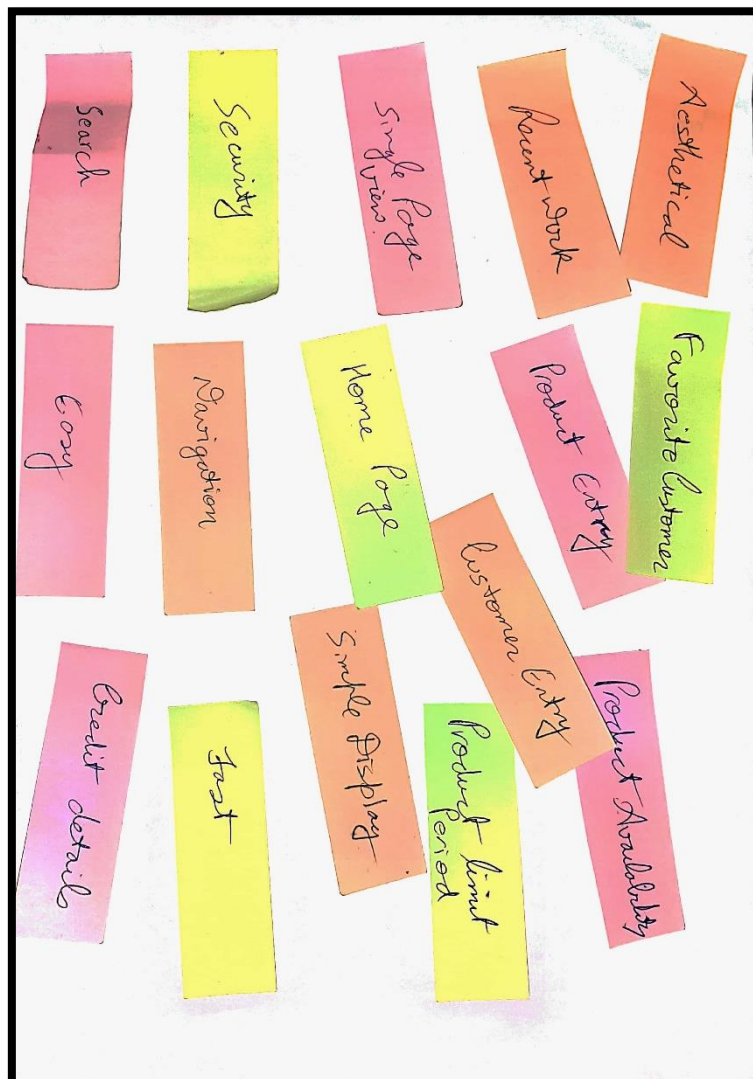 Search
Security
Single Page
view.
Recent work
Aesthetical
Easy
Navigation
Home Page
Product Entry
Favorite Customer
Credit details
Fast
Simple Display
Customer Entry
Product limit
Period
Product Availability